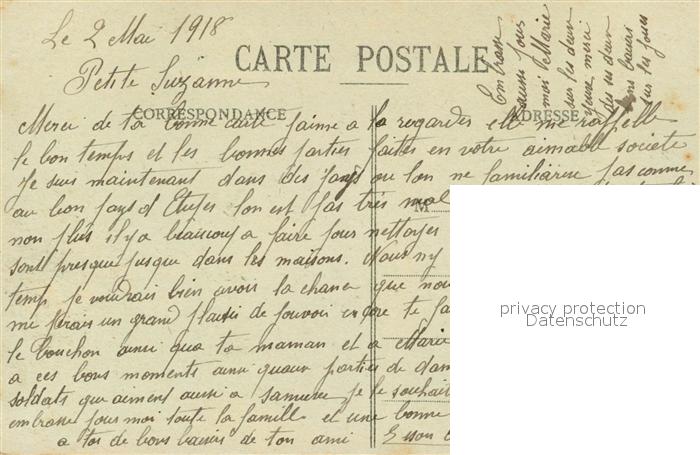 Le 2 Mai 1918
CARTE POSTALE
Petite Suzanne
CORRESPONDANCE
ADRESSE
Merci de ta bonne carte j'aime a la regardes elle me rappelle
le bon temps et les bonnes parties faites en votre aimable societe
Je suis maintenant dans des pays ou l'on ne familiarise pas comme
au bon pays d l'on est pas très mal
M
non plus il y a beaucoup a faire pour nettoyer
sont presque jusque dans les maisons. Nous ny
temp je voudrais bien avoir la chance que nou
me ferais un grand plaisir de pouvoir encore te fa
le bouchon ainsi qua ta maman et a Marie
a ces bons moments ainsi quaux parties de dam
soldats que aiment aussi a samuse je le souhait
embrasse pour moi toute la famille et une bonne
a toi de bons baisers de ton ami
Embrasse
aussi pour
moi Marie
sur les deux
joues merci
des deux
bons baisers
sur les joues
privacy protection
Datenschutz